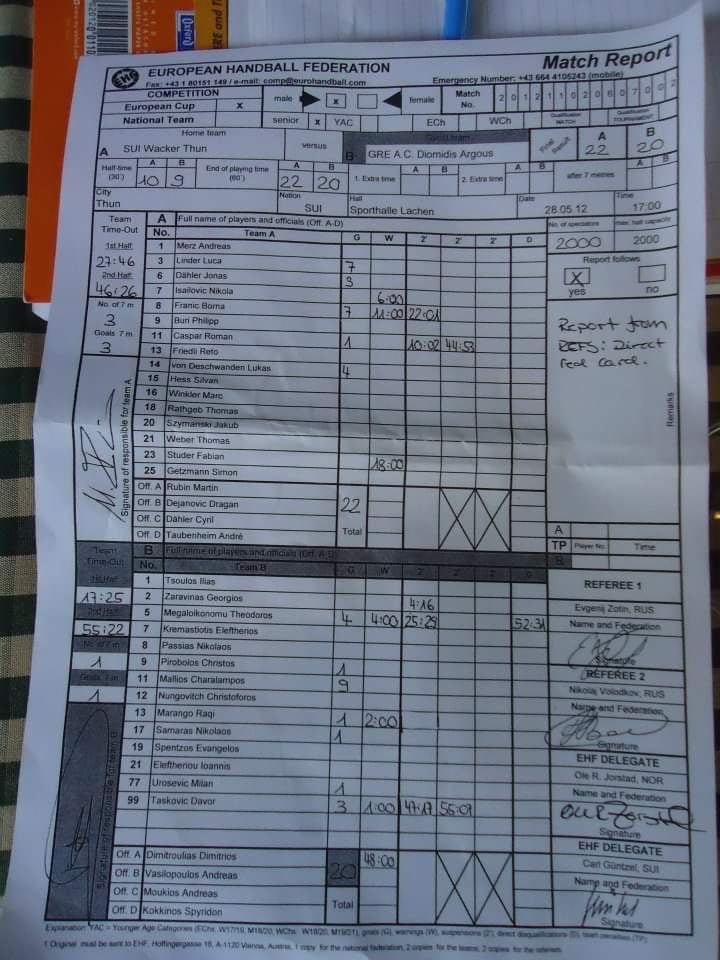 EUROPEAN HANDBALL FEDERATION
Match Report
Fax: +43 1 80151 149 / e-mail: comp@eurohandball.com
Emergency Number: +43 664 4105243 (mobile)
COMPETITION
male x female
Match No. 201211020607002
European Cup x
National Team
senior x YAC ECh WCh
Qualification MATCH
Qualification TOURNAMENT
Home team
versus
Guest team
A SUI Wacker Thun
B GRE A.C. Diomidis Argous
Final Result A 22 B 20
Half-time (30') A 10 B 9
End of playing time (60') A 22 B 20
1. Extra time A B
2. Extra time A B
after 7 metres A B
City Thun
Nation SUI
Hall Sporthalle Lachen
Date 28.05.12
Time 17:00
Team Time-Out
1st Half 27:46
2nd Half 46:26
No. of 7 m 3
Goals 7 m 3
Signature of responsible for team A
A Full name of players and officials (Off. A-D)
No. Team A G W 2' 2' 2' D
1 Merz Andreas
3 Linder Luca 7
6 Dähler Jonas 3
7 Isailovic Nikola 6:00
8 Franic Borna 7 11:00 22:01
9 Buri Philipp
11 Caspar Roman 1 10:02 44:53
13 Friedli Reto
14 von Deschwanden Lukas 4
15 Hess Silvan
16 Winkler Marc
18 Rathgeb Thomas
20 Szymanski Jakub
21 Weber Thomas
23 Studer Fabian 18:00
25 Getzmann Simon
Off. A Rubin Martin
Off. B Dejanovic Dragan 22
Off. C Dähler Cyril
Off. D Taubenheim André Total
No. of spectators 2000
max. hall capacity 2000
Report follows
X yes
no
Report from
REFS: Direct
red card.
Remarks
A
TP Player No. Time
B
Team Time-Out
1st Half 17:25
2nd Half 55:22
No. of 7 m 1
Goals 7 m 1
Signature of responsible for team B
B Full name of players and officials (Off. A-D)
No. Team B G W 2' 2' 2' D
1 Tsoulos Ilias
2 Zaravinas Georgios 4:16
5 Megaloikonomu Theodoros 4 4:00 25:29 52:31
7 Kremastiotis Eleftherios
8 Passias Nikolaos
9 Pirobolos Christos 1
11 Mallios Charalampos 9
12 Nungovitch Christoforos
13 Marango Raqi 1 2:00
17 Samaras Nikolaos 1
19 Spentzos Evangelos
21 Eleftheriou Ioannis
77 Urosevic Milan 1
99 Taskovic Davor 3 1:00 47:17 55:01
Off. A Dimitroulias Dimitrios 48:00
Off. B Vasilopoulos Andreas 20
Off. C Moukios Andreas
Off. D Kokkinos Spyridon Total
REFEREE 1
Evgenij Zotin, RUS
Name and Federation
Signature
REFEREE 2
Nikolaj Volodkov, RUS
Name and Federation
Signature
EHF DELEGATE
Ole R. Jorstad, NOR
Name and Federation
Signature
EHF DELEGATE
Carl Güntzel, SUI
Name and Federation
Signature
Explanation: YAC = Younger Age Categories (EChs, W17/19, M18/20, WChs W18/20, M19/21), goals (G), warnings (W), suspensions (2'), direct disqualifications (D), team penalties (TP);
1 Original must be sent to EHF, Hoffingergasse 18, A-1120 Vienna, Austria, 1 copy for the national federation, 2 copies for the teams, 2 copies for the referees
Oxford